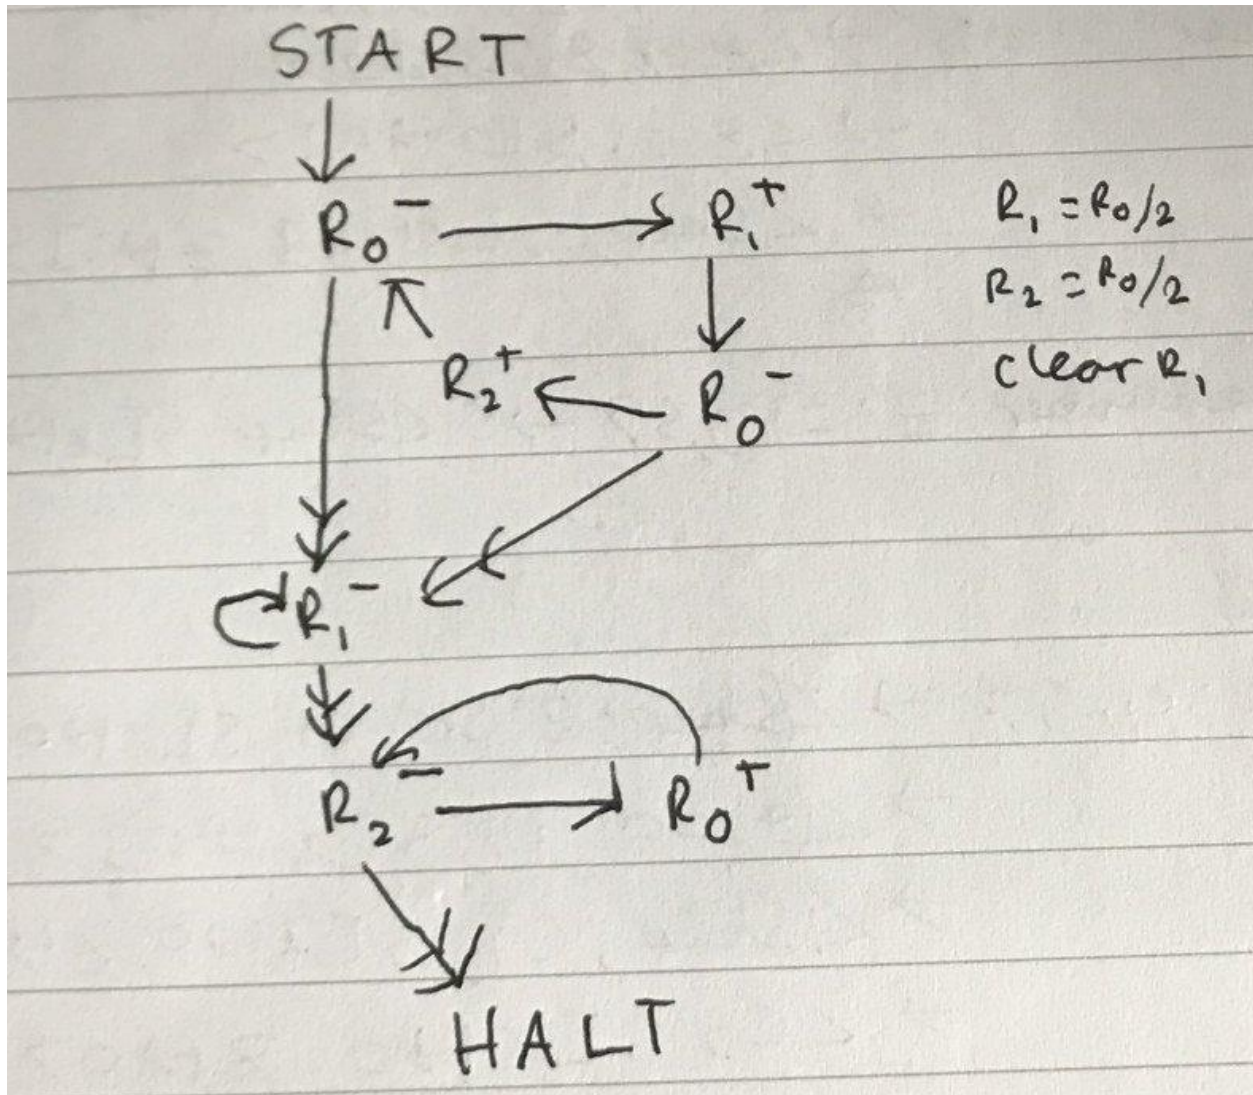 START
R₀⁻ R₁⁺ R₁ = R₀/2
R₂ = R₀/2
R₂⁺ R₀⁻ clear R₁
R₁⁻
R₂⁻ R₀⁺
HALT